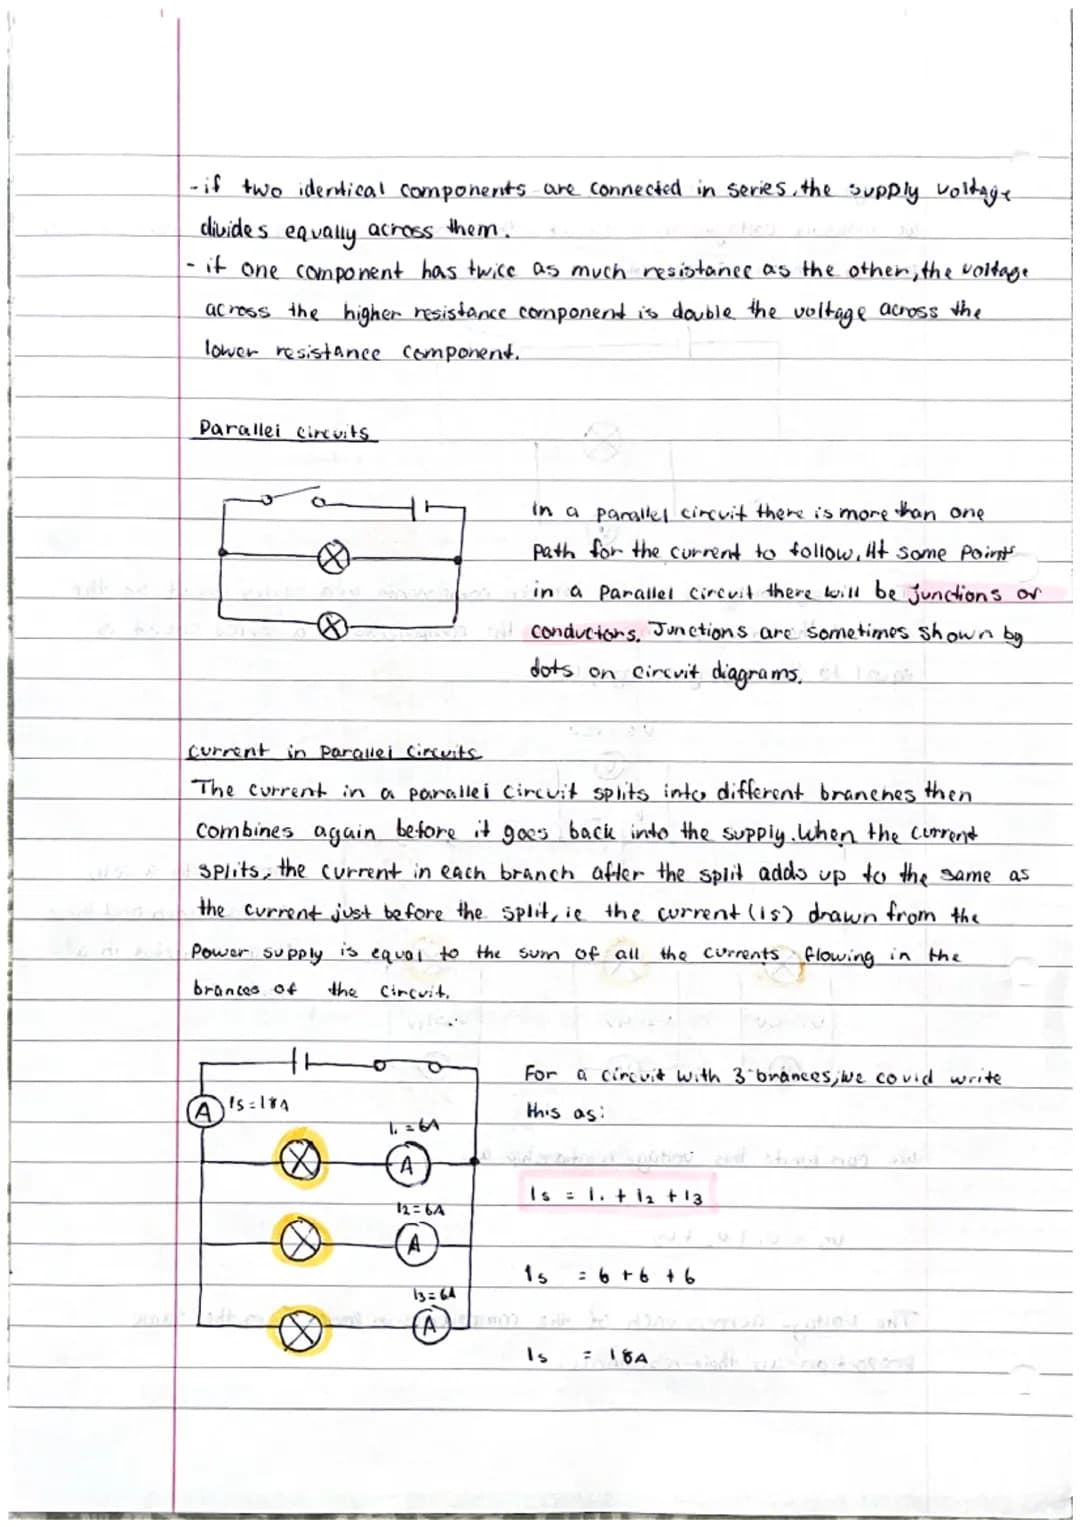 -if two identical components are connected in series, the supply voltage
divides equally across them.
- if one component has twice as much resistance as the other, the voltage
across the higher resistance component is double the voltage across the
lower resistance component.
Parallel circuits
in a parallel circuit there is more than one
path for the current to follow. At some points
in a parallel circuit there will be junctions or
conductors. Junctions are sometimes shown by
dots on circuit diagrams.
current in parallel circuits
The current in a parallel circuit splits into different branches then
combines again before it goes back into the supply. When the current
splits, the current in each branch after the split adds up to the same as
the current just before the split, ie the current (Is) drawn from the
Power supply is equal to the sum of all the currents flowing in the
brances of the circuit.
A Is=18A
I₁=6A
A
I2=6A
A
I3=6A
A
For a circuit with 3 brances, we could write
this as:
Is = I₁ + I₂ + I3
Is = 6 + 6 + 6
Is = 18A